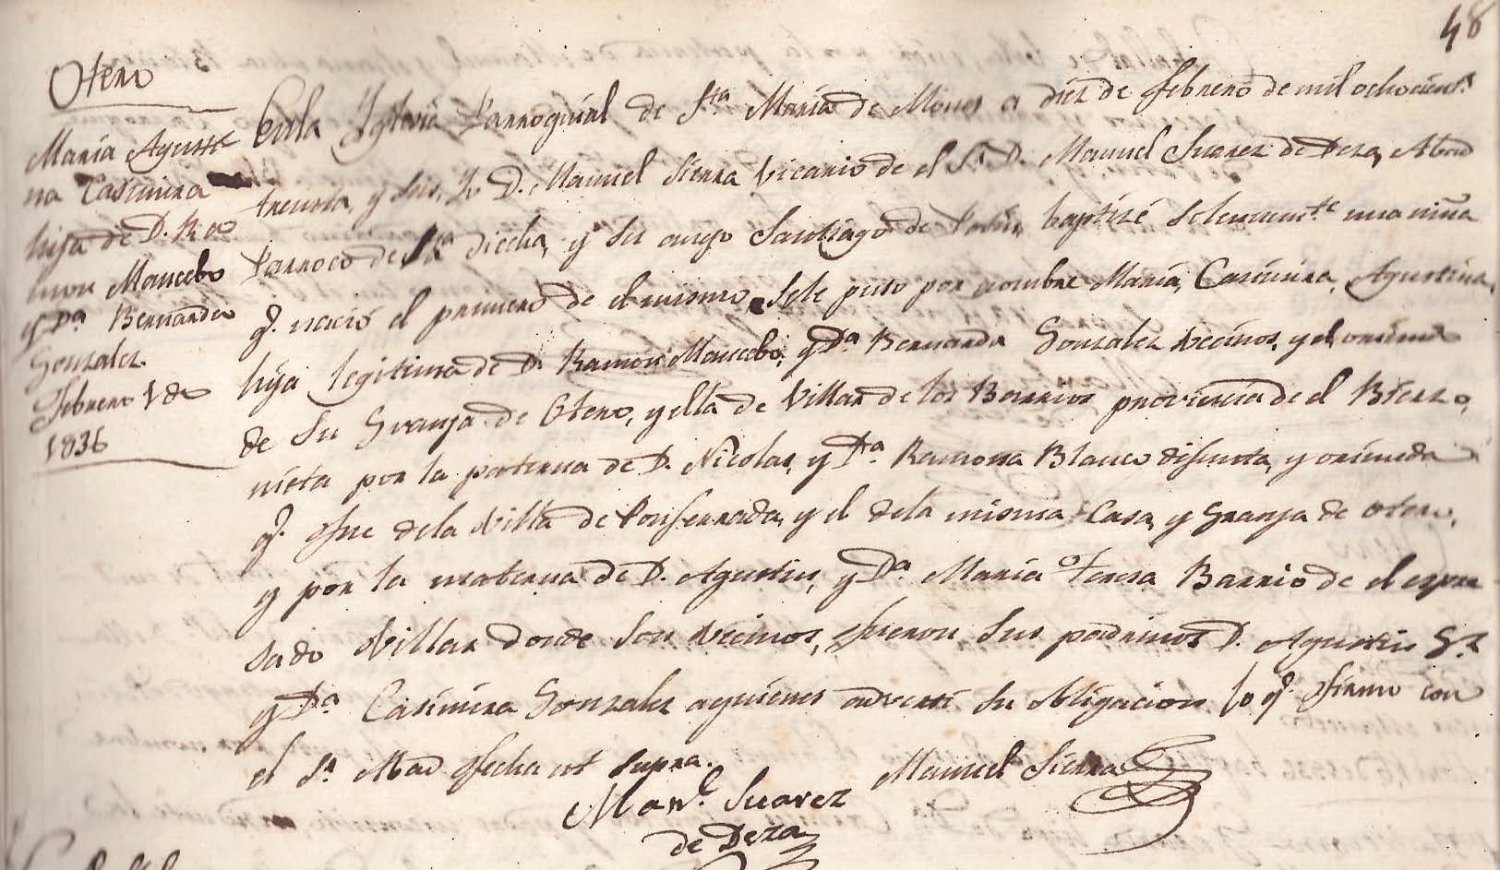 48
Otero
María Agusti
na Casimira
hija de D. Ra
mon Mancebo
y Dª Bernarda
Gonzalez
Febrero 1 de
1836
Enla Yglesia Parroquial de Sta María de Mones a diez de febrero de mil ochocient.s
treinta, y seis, Yo D. Manuel Sierra Vicario de el Sr. D. Manuel Suarez de Deza, Abad
Parroco de Sta dicha, y su anejo Santiago de baptizé solemnemte una niña
q.e nació el primero de el mismo, sele puso por nombre María, Casimira, Agustina,
hija legitima de D. Ramon Mancebo, y Dª Bernarda Gonzalez vecinos, y el oriundo
de su Granja de Otero, y ella de Villar de los Barrios provincia de el Bierzo,
nieta por la paterna de D. Nicolas, y Dª Ramona Blanco difunta, y oriunda
q.e fue dela Villa de Ponferrada, y el dela misma Casa, y Granja de Otero,
y por la materna de D. Agustin, y Dª María Teresa Barrio de el expre
sado Villar donde son vecinos, fueron sus padrinos D. Agustin Gz
y Dª Casimira Gonzalez aquienes advertí su obligacion lo q.e firmo con
el Sr. Abad fecha ut supra.
Manuel Sierra
Man.l Suarez
de Deza